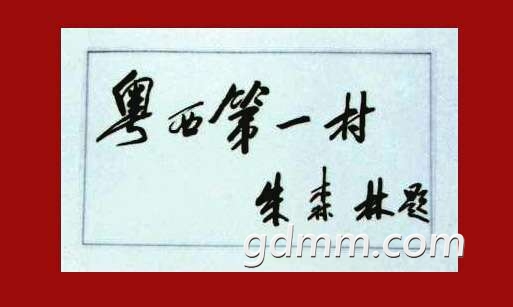 粤西第一村
朱森林题
gdmm.com